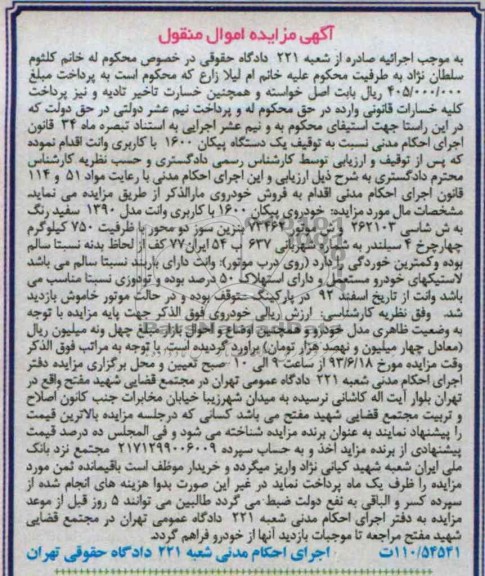 آگهی مزایده اموال منقول
به موجب اجرائیه صادره از شعبه ۲۲۱ دادگاه حقوقی در خصوص محکوم له خانم کلثوم
سلطان نژاد به طرفیت محکوم علیه خانم ام لیلا زارع که محکوم است به پرداخت مبلغ
۴۰۵/۰۰۰/۰۰۰ ریال بابت اصل خواسته و همچنین خسارت تاخیر تادیه و نیز پرداخت
کلیه خسارات قانونی وارده در حق محکوم له و پرداخت نیم عشر دولتی در حق دولت که
در این راستا جهت استیفای محکوم به و نیم عشر اجرایی به استناد تبصره ماه ۳۴ قانون
اجرای احکام مدنی نسبت به توقیف یک دستگاه پیکان ۱۶۰۰ با کاربری وانت اقدام نموده
که پس از توقیف و ارزیابی توسط کارشناس رسمی دادگستری و حسب نظریه کارشناس
محترم دادگستری به شرح ذیل ارزیابی و این اجرای احکام مدنی با رعایت مواد ۵۱ و ۱۱۴
قانون اجرای احکام مدنی اقدام به فروش خودروی مارالذکر از طریق مزایده می نماید.
مشخصات مال مورد مزایده: خودروی پیکان ۱۶۰۰ با کاربری وانت مدل ۱۳۹۰ سفید رنگ
به ش شاسی ۲۶۲۱۰۳ و ش موتور ۷۳۴۶۴ بنزین سوز دو محور با ظرفیت ۷۵۰ کیلوگرم
چهارچرخ ۴ سیلندر به شماره شهربانی ۶۳۷ ب ۵۴ ایران۷۷ کف از لحاظ بدنه نسبتا سالم
بوده وکمترین خوردگی را دارد (روی درب موتور): وانت دارای باربند نسبتا سالم می باشد
لاستیکهای خودرو مستعمل و دارای استهلاک ۵۰ درصد بوده و تودوزی نسبتا مناسب می
باشد وانت از تاریخ اسفند ۹۲ در پارکینگ متوقف بوده و در حالت موتور خاموش بازدید
شد. وفق نظریه کارشناسی: ارزش ریالی خودروی فوق الذکر جهت پایه مزایده با توجه
به وضعیت ظاهری مدل خودرو و همچنین اوضاع و احوال بازار مبلغ چهل ونه میلیون ریال
(معادل چهار میلیون و نهصد هزار تومان) برآورد گردیده است. با توجه به مراتب فوق الذکر
وقت مزایده مورخ ۹۳/۶/۱۸ از ساعت ۹ الی ۱۰ صبح تعیین و محل برگزاری مزایده دفتر
اجرای احکام مدنی شعبه ۲۲۱ دادگاه عمومی تهران در مجتمع قضایی شهید مفتح واقع در
تهران بلوار آیت اله کاشانی نرسیده به میدان شهرزیبا خیابان مخابرات جنب کانون اصلاح
و تربیت مجتمع قضایی شهید مفتح می باشد کسانی که درجلسه مزایده بالاترین قیمت
را پیشنهاد نمایند به عنوان برنده مزایده شناخته می شود و فی المجلس ده درصد قیمت
پیشنهادی از برنده مزاید اخذ و به حساب سپرده ۲۱۷۱۲۹۹۰۰۶۰۰۹ مجتمع نزد بانک
ملی ایران شعبه شهید کیانی نژاد واریز میگردد و خریدار موظف است باقیمانده ثمن مورد
مزایده را ظرف یک ماه پرداخت نماید در غیر این صورت بدوا هزینه های انجام شده از
سپرده کسر و الباقی به نفع دولت ضبط می گردد طالبین می توانند ۵ روز قبل از موعد
مزایده به دفتر اجرای احکام مدنی شعبه ۲۲۱ دادگاه عمومی تهران در مجتمع قضایی
شهید مفتح مراجعه تا موجبات بازدید آنها از خودرو فراهم گردد.
۱۱۰/۵۴۵۴۱ت اجرای احکام مدنی شعبه ۲۲۱ دادگاه حقوقی تهران